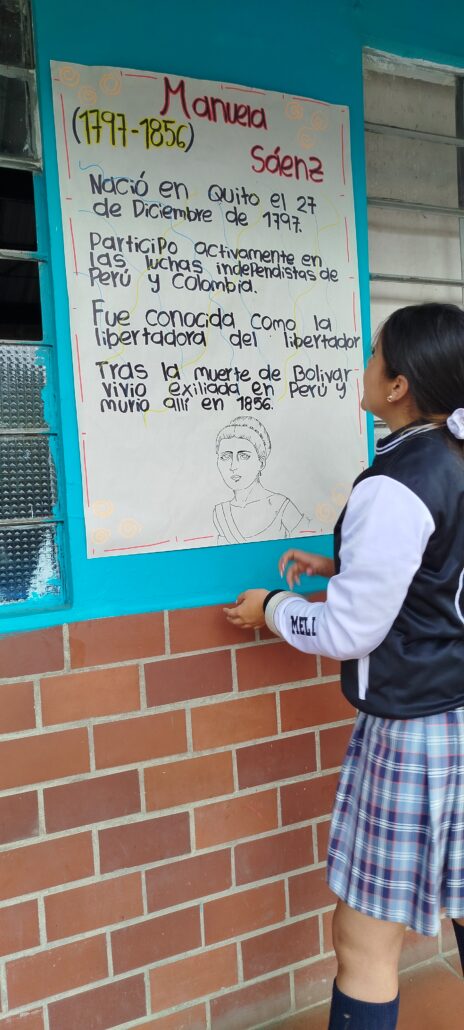 Manuela
(1797-1856)
Sáenz
Nació en Quito el 27
de Diciembre de 1797.
Participo activamente en
las luchas independistas de
Perú y Colombia.
Fue conocida como la
libertadora del libertador
Tras la muerte de Bolivar
vivio exiliada en Perú y
murio allí en 1856.
MELI